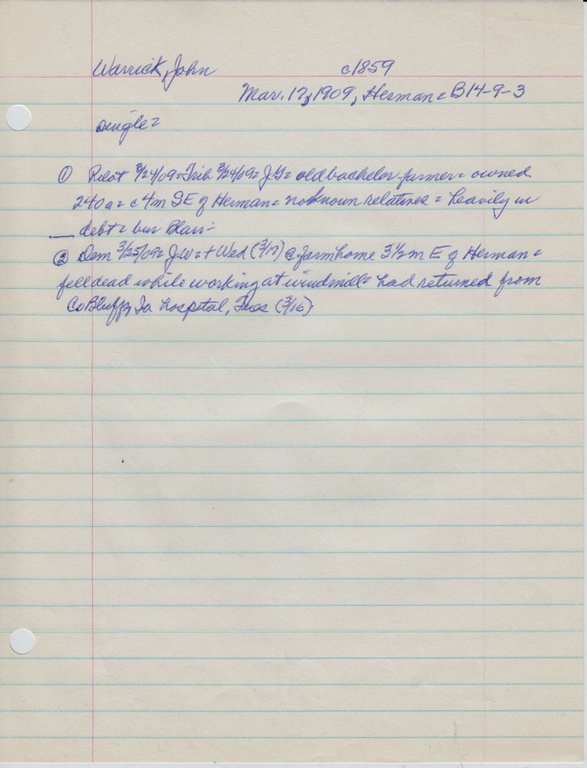 Warrick, John c1859
Mar. 17, 1909, Herman = B14-9-3
single =
① Pilot 3/24/09 = Trib 3/24/09 = J = old bachelor farmer = owned
240a = c4m SE of Herman = no known relatives = heavily in
debt = bur Blair =
② Dem 3/25/09 = J.W. = + Wed (3/17) @ farm home 3½ m E of Herman =
fell dead while working at windmill = had returned from
Co Bluffs, Ia hospital, Tues (3/16)